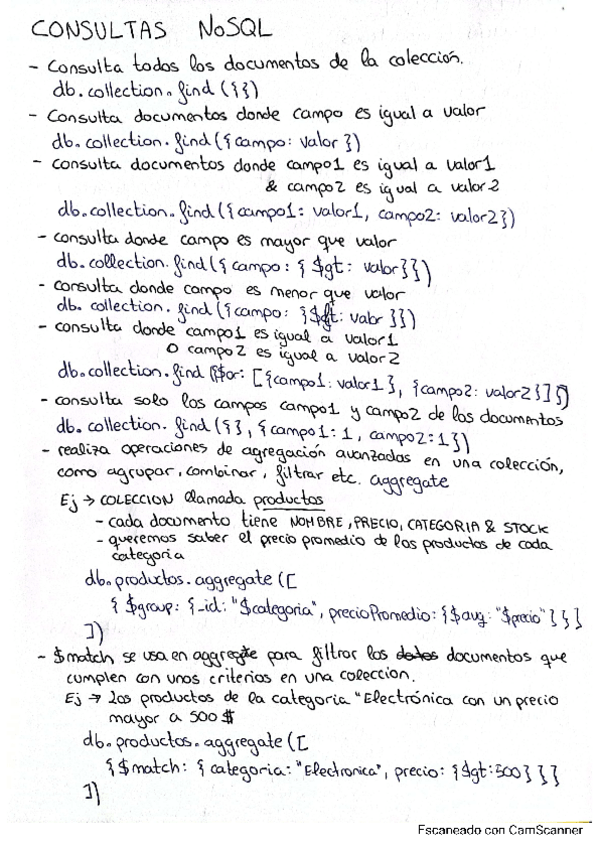 CONSULTAS NoSQL
- Consulta todos los documentos de la colección.
db.collection.find({})
- Consulta documentos donde campo es igual a valor
db.collection.find({campo: valor})
- consulta documentos donde campo1 es igual a valor1
& campo2 es igual a valor2
db.collection.find({campo1: valor1, campo2: valor2})
- consulta donde campo es mayor que valor
db.collection.find({campo: {$gt: valor}})
- consulta donde campo es menor que valor
db.collection.find({campo: {$lt: valor}})
- consulta donde campo1 es igual a valor1
O campo2 es igual a valor2
db.collection.find({$or: [{campo1: valor1}, {campo2: valor2}]})
- consulta solo los campos campo1 y campo2 de los documentos
db.collection.find({}, {campo1: 1, campo2: 1})
- realiza operaciones de agregación avanzadas en una colección,
como agrupar, combinar, filtrar etc. aggregate
Ej → COLECCION llamada productos
- cada documento tiene NOMBRE, PRECIO, CATEGORIA & STOCK
- queremos saber el precio promedio de los productos de cada
categoria
db.productos.aggregate([
{ $group: {_id: "$categoria", precioPromedio: {$avg: "$precio"}}}
])
- $match se usa en aggregate para filtrar los datos documentos que
cumplen con unos criterios en una coleccion.
Ej → Los productos de la categoria "Electrónica con un precio
mayor a 500$
db.productos.aggregate([
{$match: { categoria: "Electronica", precio: {$gt:500}}}
])
Escaneado con CamScanner